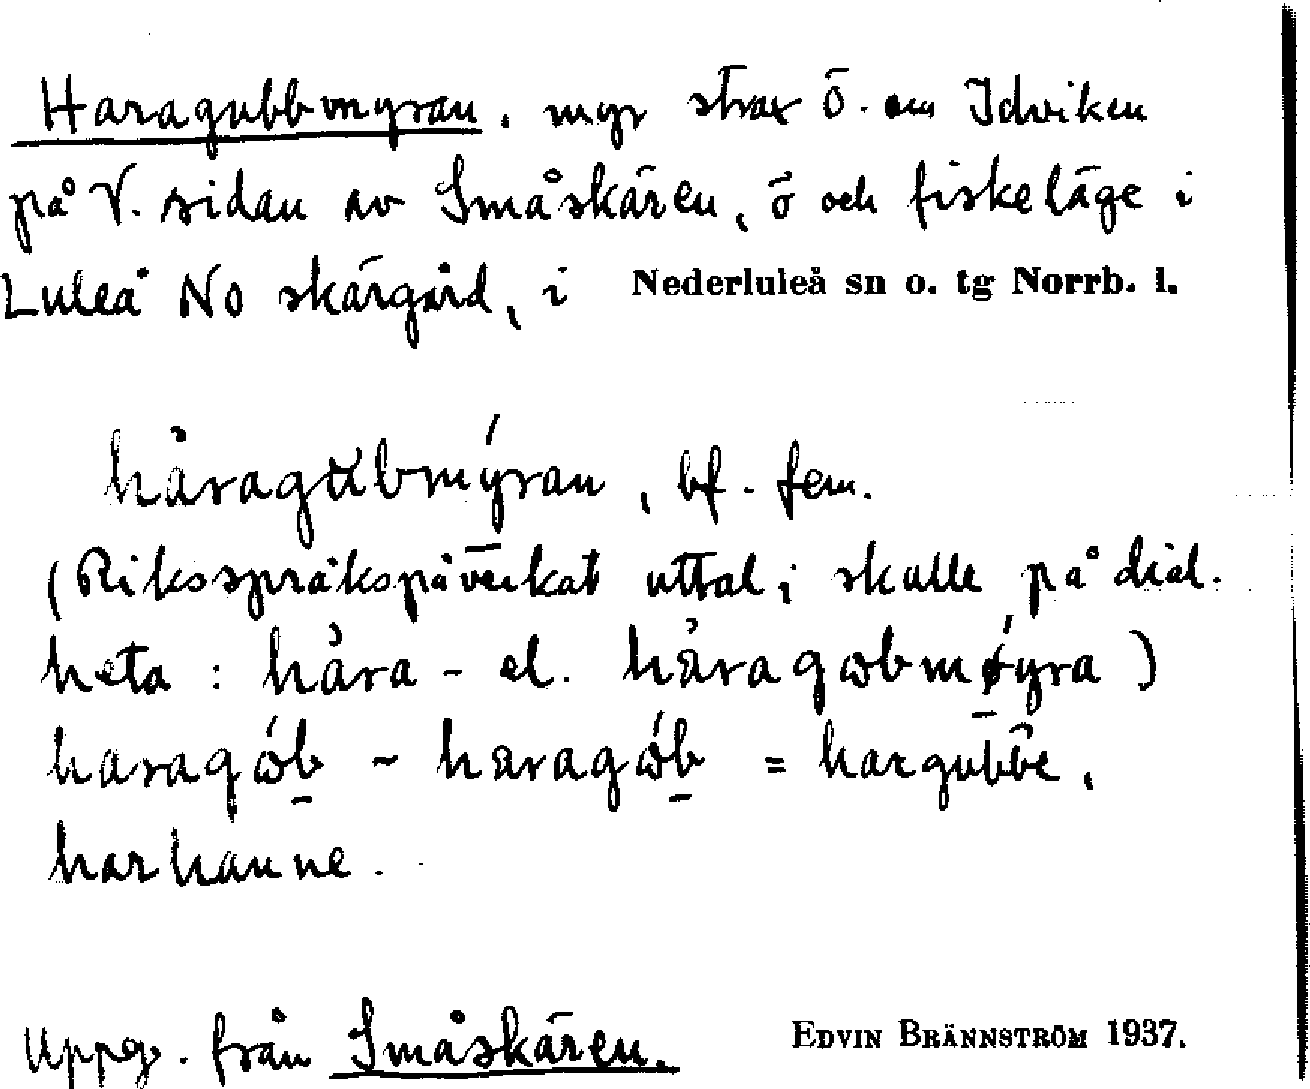 Haragubbmyran, myr strax ö. om Idviken
på V. sidan av Småskären, ö och fiskeläge i
Luleå No skärgård, i Nederluleå sn o. tg Norrb. l.
håragubmýran, bf. fem.
(Riksspråkspåverkat uttal; skulle på dial.
heta: håra- el. håragωbmǿyra)
haragώb ~ haragώb = hargubbe,
harhanne.
Uppg. från Småskären.
EDVIN BRÄNNSTRÖM 1937.